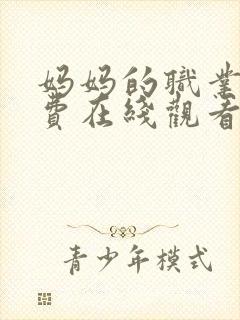 妈妈的職業
費在綫觀看
青少年模式